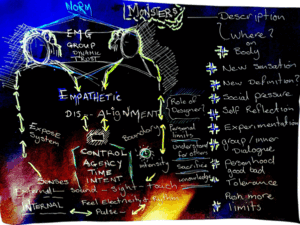 NORM
MONSTERS
EMG
GROUP
DYNAMIC
TRUST
EMPATHETIC
DIS - ALIGNMENT
Expose
System
Boundary
Intensity
CONTROL
AGENCY
TIME
INTENT
Role of
Designer!
Personal
limits
Understand
for others
Sacrifice
Knowledge
Senses
External - Sound - Sight - touch
INTERNAL
Feel Electricity
Pulse
Description
Where?
on
Body
New Sensation
New Definition?
Social pressure
Self Reflection
Experimentation
group / inner
Dialogue
personhood
good bad
Tolerance
Push more
limits